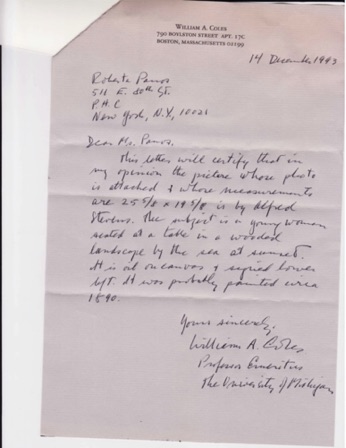 WILLIAM A. COLES
790 BOYLSTON STREET APT. 17C
BOSTON, MASSACHUSETTS 02199
14 December 1993
Roberta
E. 80th St.
New York, N.Y. 10021
Dear Ms.
This letter will certify that in
my opinion the picture whose photo
is attached & whose measurements
are 25 5/8 x 19 5/8 is by Alfred
Stevens. The subject is a young woman
seated at a table in a wooded
landscape by the sea at sunset.
It is oil on canvas & signed lower
left. It was probably painted circa
1890.
Yours sincerely,
William A. Coles
Professor Emeritus
The University of Michigan